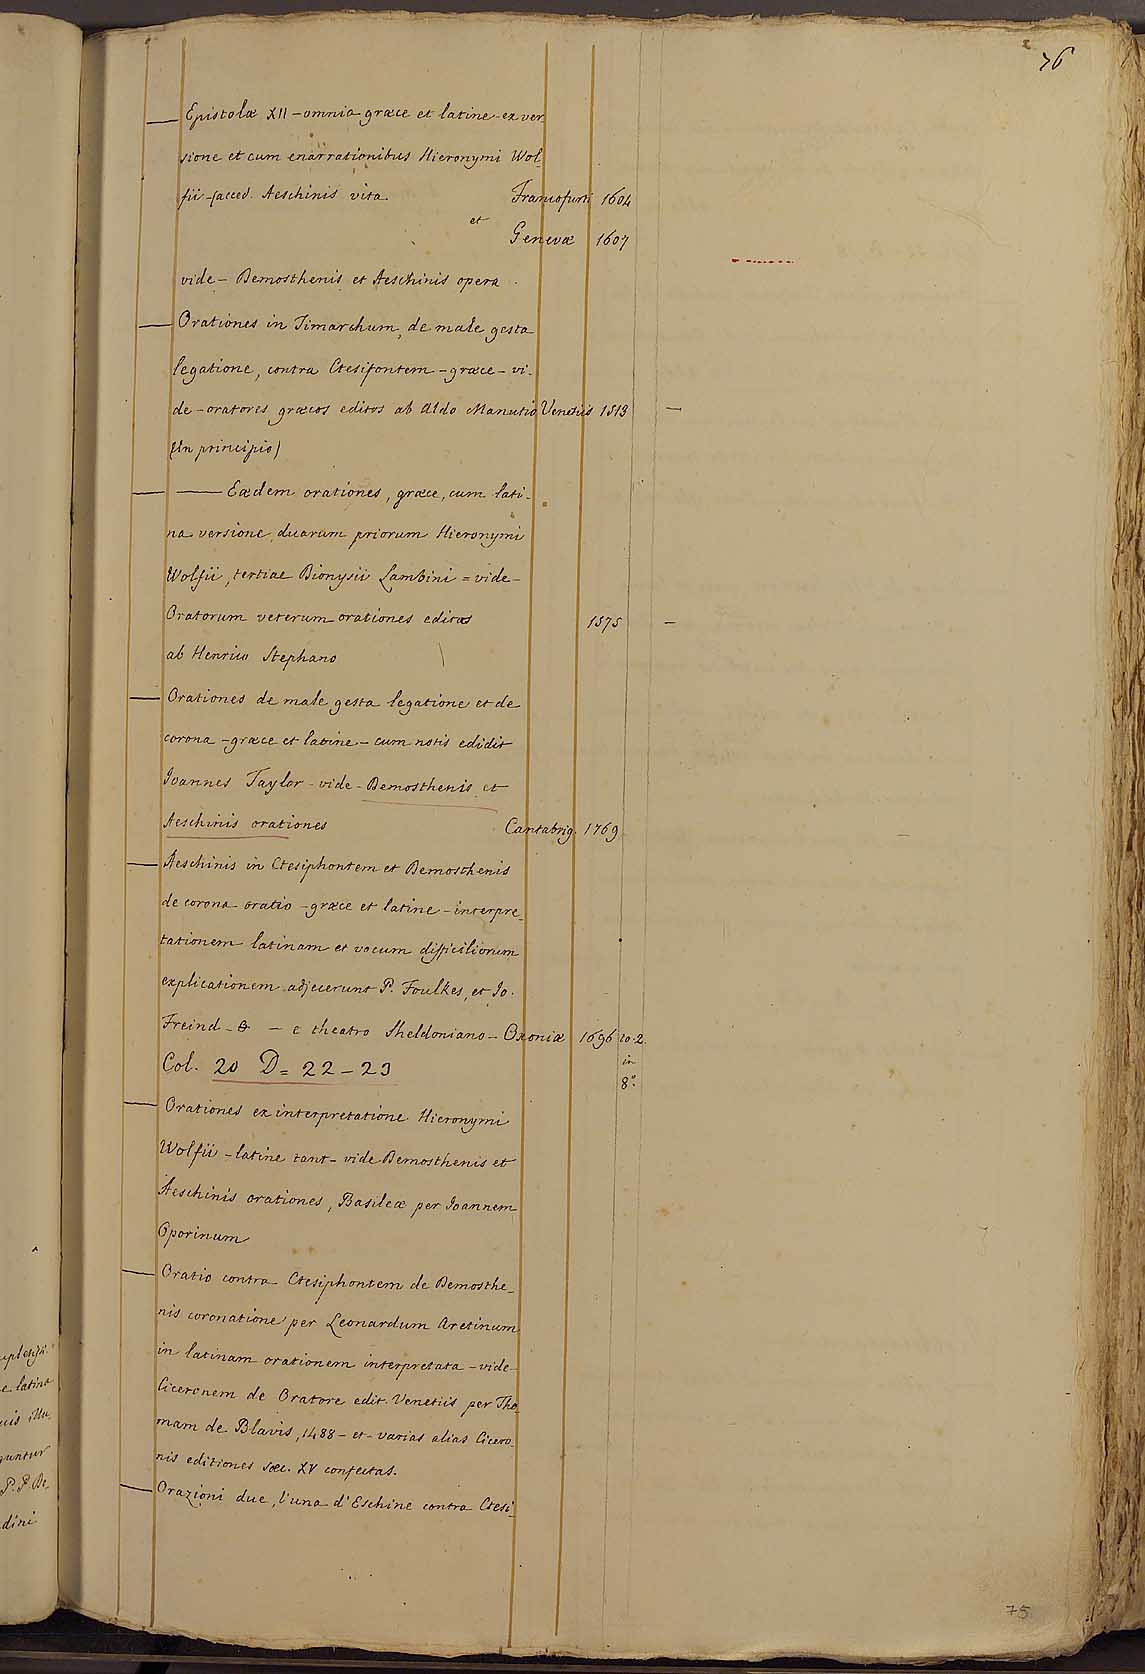 76
— Epistolæ XII – omnia græce et latine ex ver
sione et cum enarrationibus Hieronymi Wol_
fii – (acced. Aeschinis vita. Francofurti 1604
et
Genevæ 1607
vide – Demosthenis et Aeschinis opera .
— Orationes in Timarchum, de male gesta
legatione, contra Ctesifontem – græce – vi_
de – oratores græcos editos ab Aldo Manutio Venetiis 1513 —
(In principio)
— — Eædem orationes, græce, cum lati_
na versione, duarum priorum Hieronymi
Wolfii, tertiae Dionysii Lambini = vide –
Oratorum veterum orationes editas 1575 —
ab Henrico Stephano
— Orationes de male gesta legatione et de
corona – græce et latine – cum notis edidit
Joannes Taylor – vide – Demosthenis et
Aeschinis orationes Cantabrig. 1769
— Aeschinis in Ctesiphontem et Demosthenis
de corona oratio – græce et latine – interpre_
tationem latinam et vocum difficiliorum
explicationem adjecerunt P. Foulkes, et Jo.
Freind – – e theatro Sheldoniano – Oxoniæ 1696 to. 2.
in
8º.
Col. 20 D = 22 – 23
— Orationes ex interpretatione Hieronymi
Wolfii – latine tant – vide Demosthenis et
Aeschinis orationes, Basileæ per Joannem
Oporinum
— Oratio contra Ctesiphontem de Demosthe_
nis coronatione per Leonardum Aretinum
in latinam orationem interpretata – vide
Ciceronem de Oratore edit. Venetiis per Tho
mam de Blavis, 1488 – et – varias alias Cicero_
nis editiones sæc. XV confectas.
— Orazioni due, l'una d'Eschine contra Ctesi_
75
e latina
P. P. Be_
dini